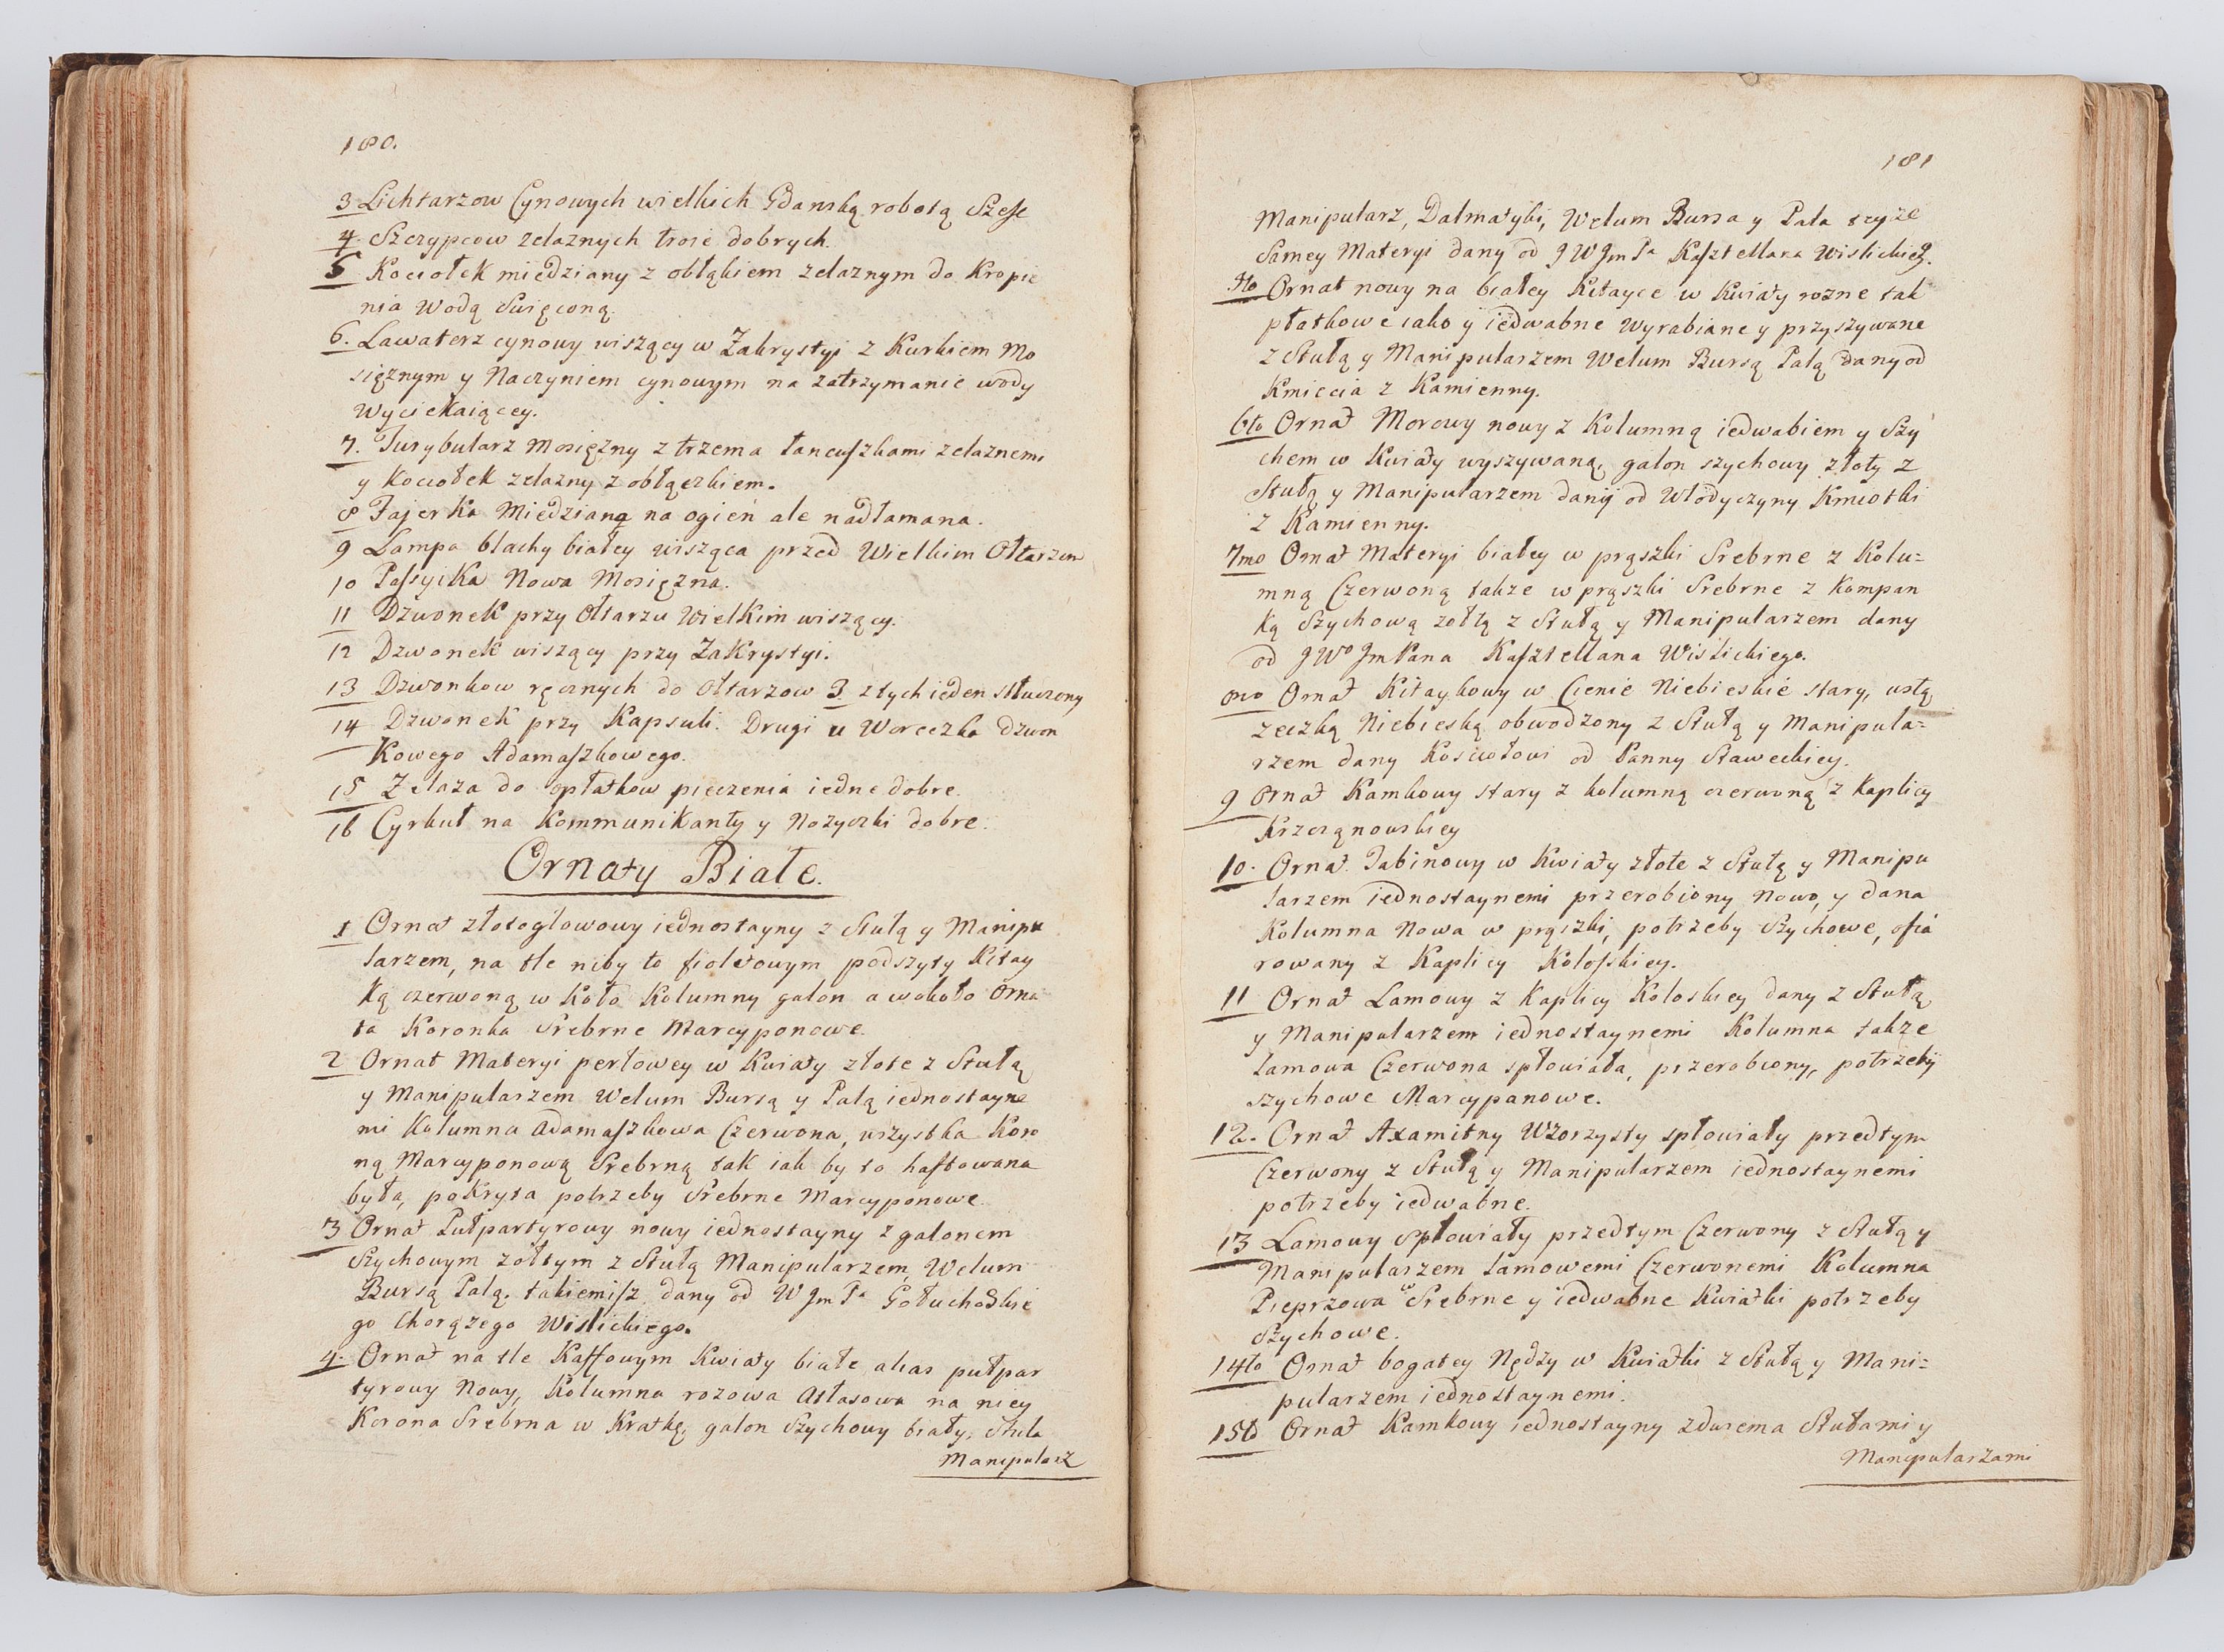 180.
3 Lichtarzow Cynowych wielkich Gdanską robotą Szesc
4. Szczypcow zelaznych troie dobrych.
5 Kociołek miedziany z obłąkiem zelaznym do Kropie
nia Wodą Swięconą.
6. Lawaterz cynowy wiszący w Zakrystyi z Kurkiem Mo
siężnym y Naczyniem cynowym na zatrzymanie wody
Wyciekaiącey.
7. Turybularz Mosiężny z trzema łancuszkami zelaznemi
y Kociołek zelazny z obłączkiem.
8 Fajerka Miedziana na ogień ale nadłamana.
9 Lampa blachy białey wisząca przed Wielkim Ołtarzem
10 Passyika Nowa Mosiężna.
11 Dzwonek przy Ołtarzu Wielkim wiszący.
12 Dzwonek wiszący przy Zakrystyi.
13 Dzwonkow ręcznych do Ołtarzow 3 z tych ieden stłuczony
14 Dzwonek przy Kapsuli. Drugi u Woreczka Dzwon
Kowego Adamaszkowego.
15 Zelaza do opłatkow pieczenia iedne dobre.
16 Cyrkuł na Kommunikanty y Nozyczki dobre.
Ornaty Białe.
1 Ornat złotogłowowy iednostayny z Stułą y Manipu
larzem, na tle niby to fioletowym podszyty Kitay
ką czerwoną w Koło Kolumny galon a wokoło Orna
ta Koronka Srebrne Marcyponowe
2 Ornat Materyi perłowey w Kwiaty złote z Stułą
y Manipularzem Welum Bursą y Palą iednostayne
mi Kolumna Adamaszkowa Czerwona, wszystka Koro
ną Marcyponową Srebrną tak iak by to haftowana
była, pokryta potrzeby Srebrne Marcyponowe
3 Ornat Pułpartyrowy nowy iednostayny z galonem
Szychowym zołtym z Stułą Manipularzem, Welum
Bursą Palą. takiemisz dany od W Jm Pa Gołuchoskie
go Chorązego Wislickiego.
4. Ornat na tle Kaffowym Kwiaty białe alias pułpar
tyrowy Nowy, Kolumna rozowa Atłasowa na niey
Korona Srebrna w Kratkę, galon Szychowy biały, Stuła
Manipularz
181
Manipularz, Dalmatyki, Welum Bursa y Pala teyze
Samey Materyi dany od J W Jm Pa Kasztellana Wislickieg.
5to Ornat nowy na białey Kitayce w Kwiaty rozne tak
płatkowe iako y iedwabne wyrabiane y przyszywane
z Stułą y Manipularzem Welum Bursą Palą dany od
Kmiecia z Kamienny.
6to Ornat Morowy nowy z Kolumną iedwabiem y Szy
chem w Kwiaty wyszywaną, galon szychowy złoty z
Stułą y Manipularzem danÿ od Włodyczyny Kmiotki
z Kamienny.
7mo Ornat Materyi białey w prąszki Srebrne z Kolu=
mną Czerwoną takze w prąszki Srebrne z Kompan
ką Szychową zołtą z Stułą y Manipularzem dany
od J Wo Jm Pana Kasztellana Wislickiego.
8mo Ornat Kitaykowy w Cienie Niebieskie stary, wstą
zeczką Niebieską obwodzony z Stułą y Manipula=
rzem dany Kosciołowi od Panny Staweckiey.
9 Ornat Kamkowy stary z kolumną czerwoną z Kaplicy
Krzcząnowskiey
10. Ornat Tabinowy w Kwiaty złote z Stułą y Manipu
larzem iednostaynemi przerobiony Nowo, y dana
Kolumna Nowa w prązki, potrzeby Szychowe, ofia
rowany z Kaplicy Koloskiey.
11 Ornat Lamowy z Kaplicy Koloskiey dany z Stułą
y Manipularzem iednostaynemi Kolumna takze
lamowa Czerwona spłowiała, przerobiony, potrzebÿ
szychowe Marcypanowe.
12. Ornat Axamitny Wzorzysty spłowiały przedtym
Czerwony z Stułą y Manipularzem iednostaynemi
potrzeby iedwabne.
13 Lamowy spłowiały przedtym Czerwony z Stułą y
Manipularzem lamowemi Czerwonemi Kolumna
Pieprzowa w Srebrne y iedwabne Kwiatki potrzeby
Szychowe.
14to Ornat bogatey Nędzy w Kwiatki z Stułą y Mani=
pularzem iednostaynemi.
15to Ornat Kamkowy iednostayny z dwiema Stułami y
Manipularzami